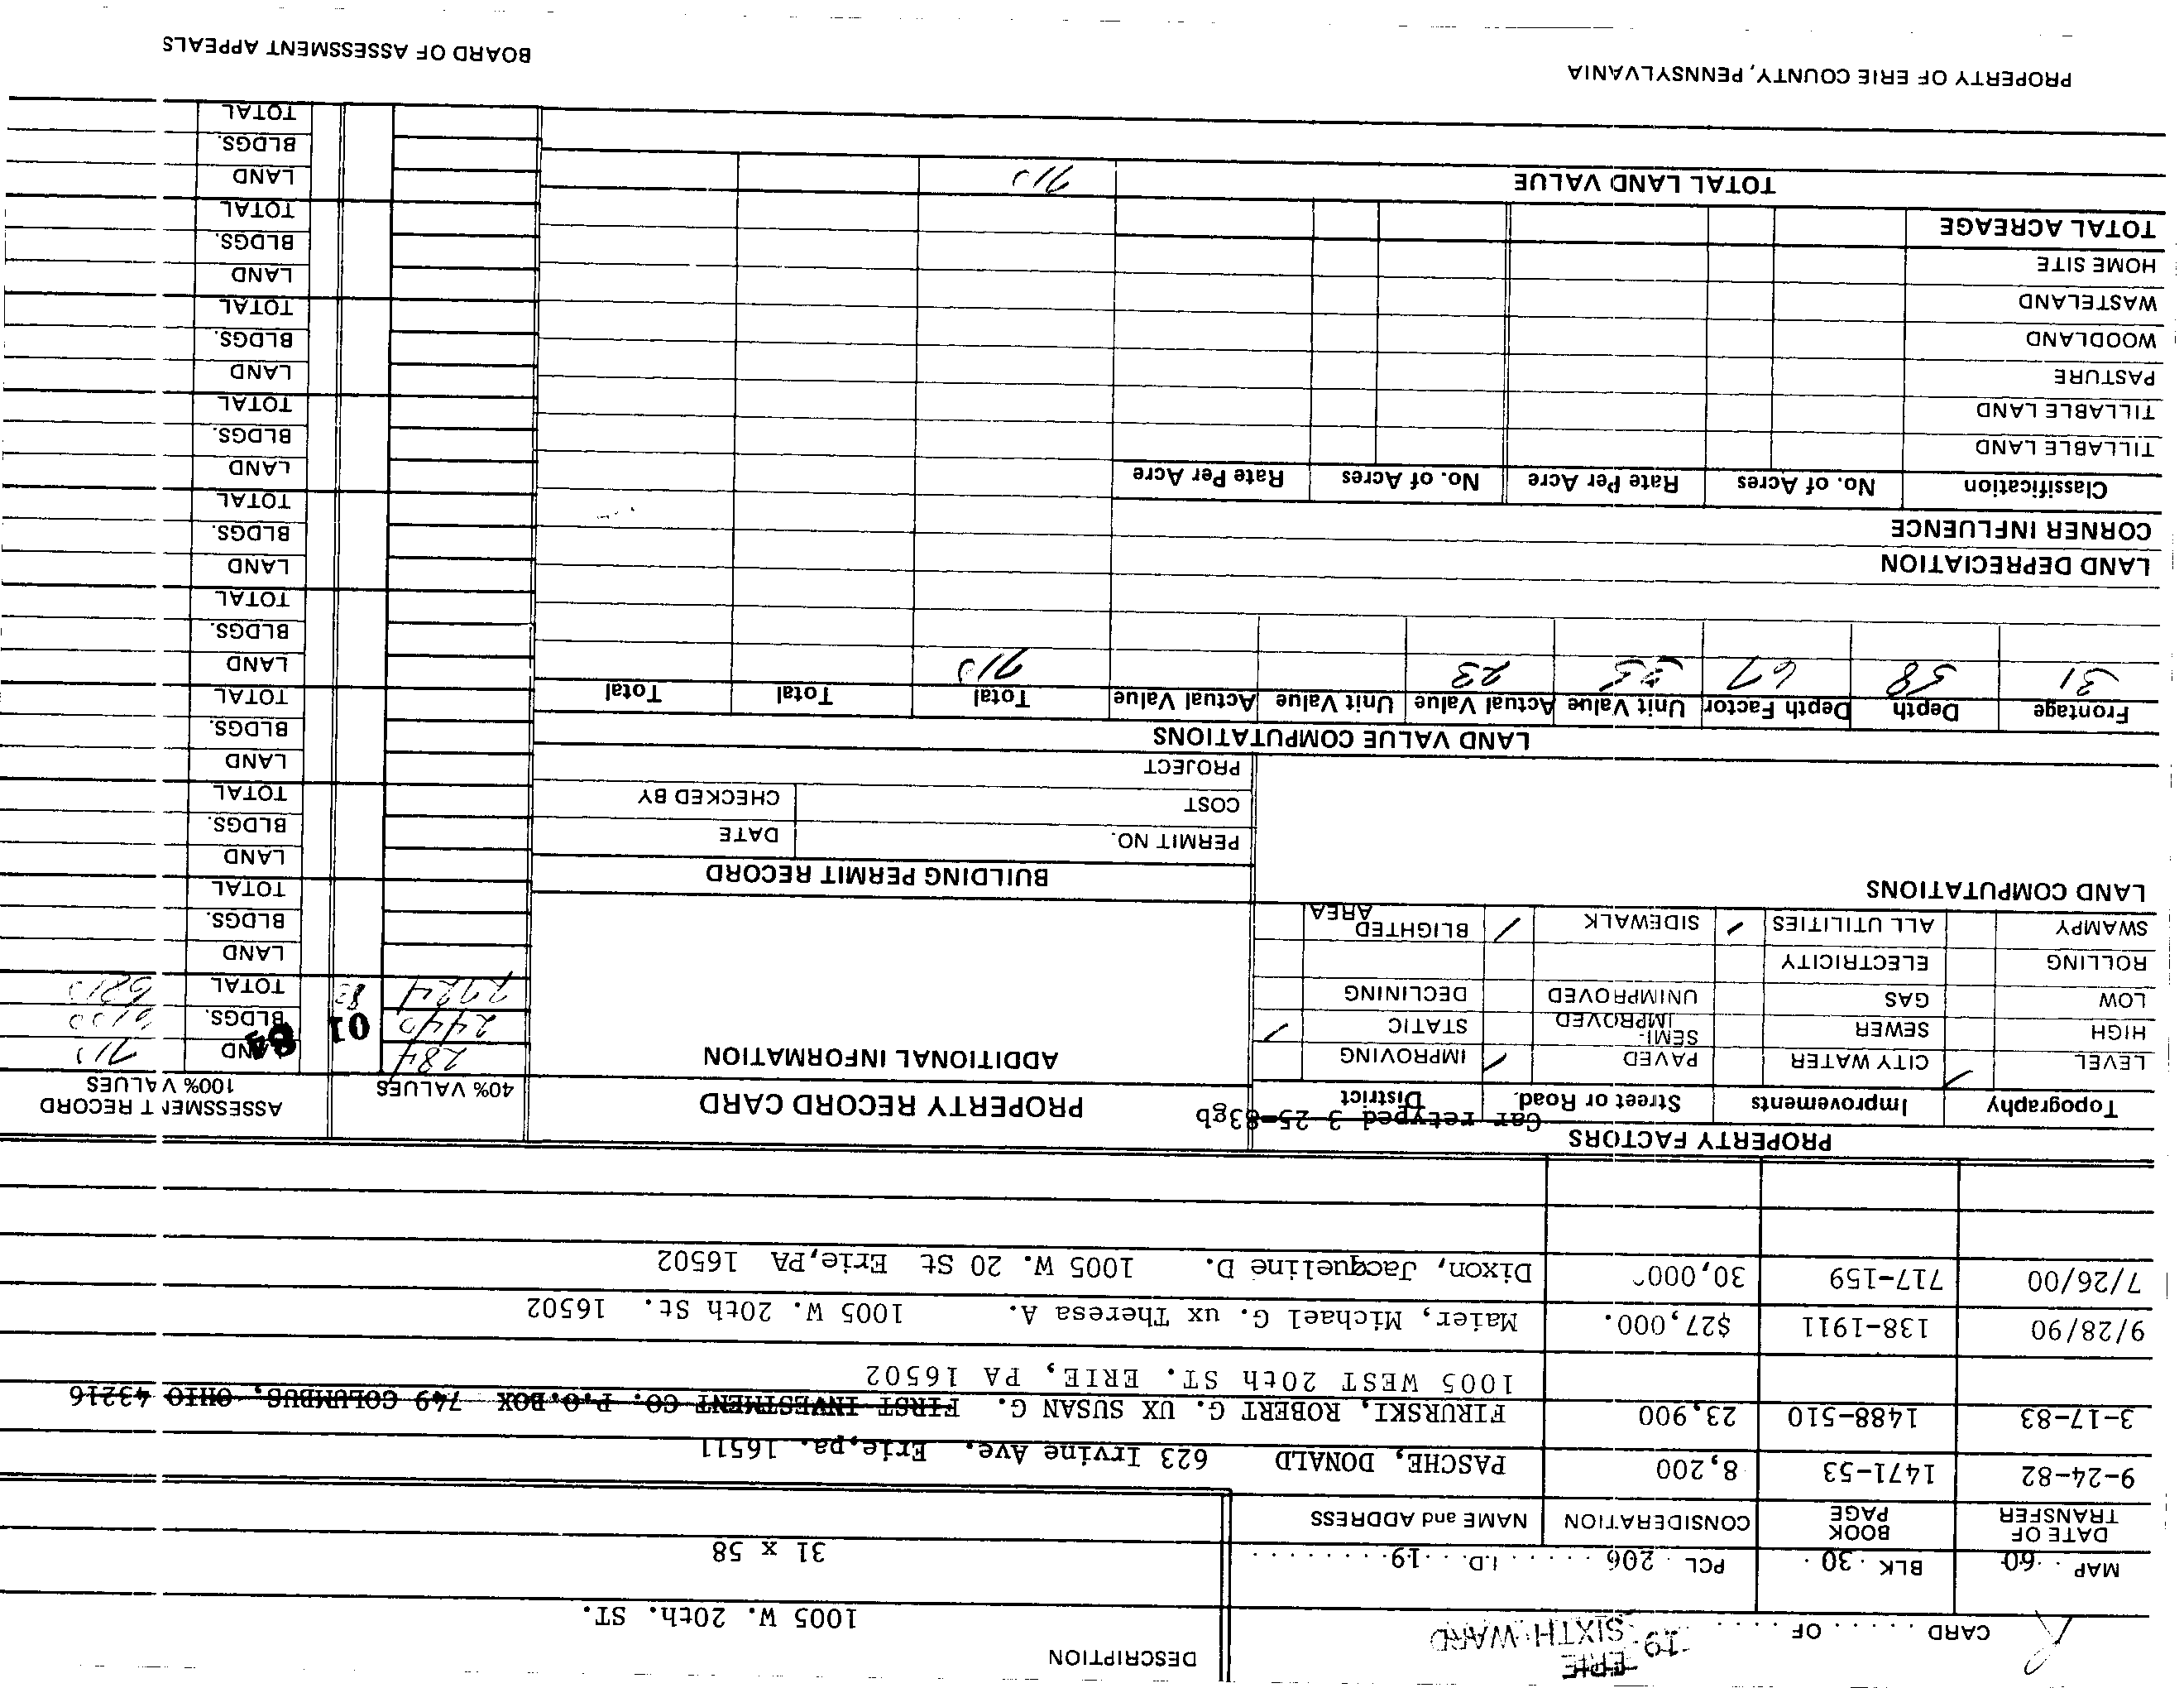 ERIE
19 SIXTH WARD
CARD . . . . . . OF . . . . . .
DESCRIPTION
1005 W. 20th. ST.
MAP . . 60 BLK . 30 . PCL . 206 . . . . . . I.D. . . . 19 . . . . . . . . .
31 x 58
DATE OF TRANSFER BOOK PAGE CONSIDERATION NAME and ADDRESS
9-24-82 1471-53 8,200 PASCHE, DONALD 623 Irvine Ave. Erie,pa. 16511
3-17-83 1488-510 23,900 FIRURSKI, ROBERT G. UX SUSAN G. FIRST INVESTMENT CO. P.O.BOX 749 COLUMBUS, OHIO 43216
1005 WEST 20th ST. ERIE, PA 16502
9/28/90 138-1911 $27,000. Maier, Michael G. ux Theresa A. 1005 W. 20th St. 16502
7/26/00 717-159 30,000 Dixon, Jacqueline D. 1005 W. 20 St Erie,PA 16502
PROPERTY FACTORS
Car retyped 3-25-83gb
Topography Improvements Street or Road. District
PROPERTY RECORD CARD
40% VALUES
ASSESSMENT RECORD
100% VALUES
LEVEL ✓ CITY WATER PAVED ✓ IMPROVING
ADDITIONAL INFORMATION
284 01 84 LAND 710
HIGH SEWER SEMI-IMPROVED STATIC ✓
2440 BLDGS. 6100
LOW GAS UNIMPROVED DECLINING
2724 83 TOTAL 6810
ROLLING ELECTRICITY
LAND
SWAMPY ALL UTILITIES ✓ SIDEWALK ✓ BLIGHTED AREA
BLDGS.
LAND COMPUTATIONS
TOTAL
BUILDING PERMIT RECORD
LAND
PERMIT NO. DATE
BLDGS.
COST CHECKED BY
TOTAL
PROJECT
LAND
LAND VALUE COMPUTATIONS
BLDGS.
Frontage Depth Depth Factor Unit Value Actual Value Unit Value Actual Value Total Total Total
TOTAL
31 58 67 35 23 710
LAND
BLDGS.
TOTAL
LAND DEPRECIATION
LAND
CORNER INFLUENCE
BLDGS.
Classification No. of Acres Rate Per Acre No. of Acres Rate Per Acre
TOTAL
TILLABLE LAND
LAND
TILLABLE LAND
BLDGS.
TOTAL
PASTURE
LAND
WOODLAND
BLDGS.
WASTELAND
TOTAL
HOME SITE
LAND
TOTAL ACREAGE
BLDGS.
TOTAL
TOTAL LAND VALUE 710
LAND
BLDGS.
TOTAL
PROPERTY OF ERIE COUNTY, PENNSYLVANIA
BOARD OF ASSESSMENT APPEALS